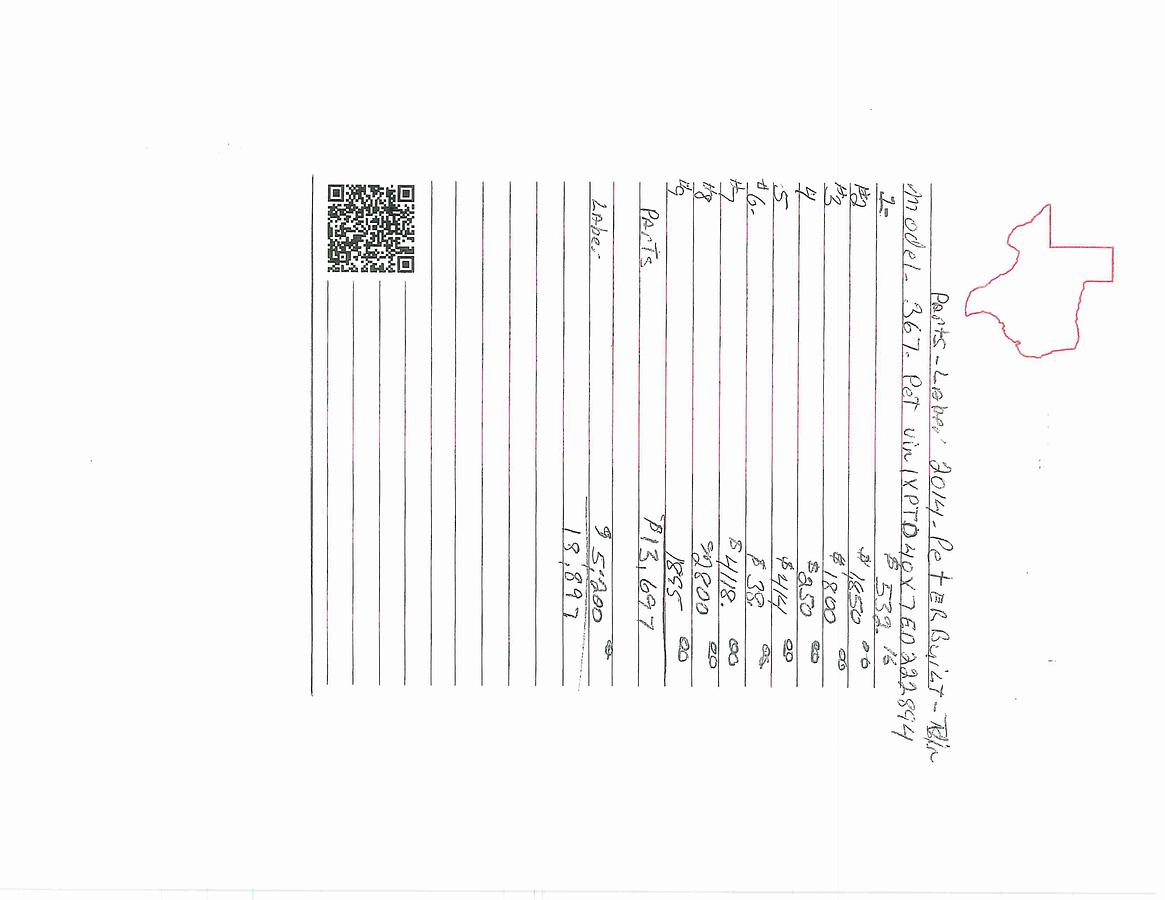 Parts - Labor 2014 - PetERBuilt - Twin
Model - 367 - Pet vin 1XPTD40X7ED222894
1- $ 532.16
#2 $ 1850 00
#3 $ 1800 00
4 $ 250 00
5 $ 414 00
#6- $ 38 00
#7 $ 4118. 00
#8 $ 2800 00
#9 1895 00
PArTs $13,697
LAbor $ 5,200 00
18,897